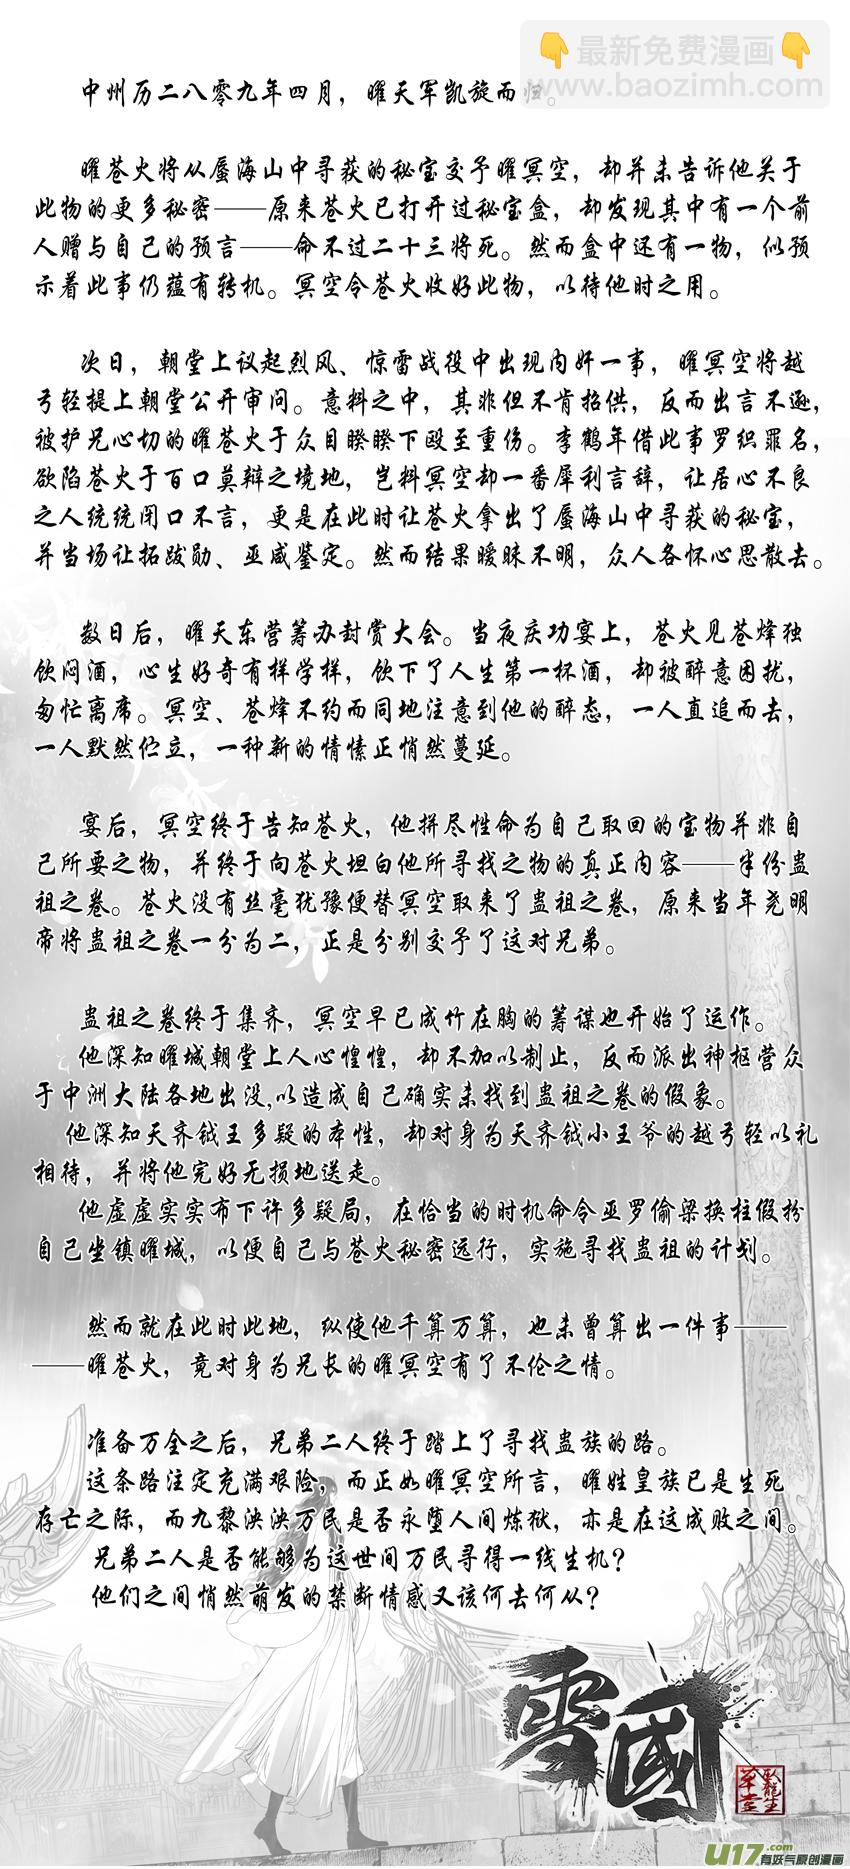 👇最新免费漫画👇
www.baozimh.com
中州历二八零九年四月，曜天军凯旋而归。
曜苍火将从蜃海山中寻获的秘宝交予曜冥空，却并未告诉他关于
此物的更多秘密——原来苍火已打开过秘宝盒，却发现其中有一个前
人赠与自己的预言——命不过二十三将死。然而盒中还有一物，似预
示着此事仍蕴有转机。冥空令苍火收好此物，以待他时之用。
次日，朝堂上议起烈风、惊雷战役中出现内奸一事，曜冥空将越
兮轻提上朝堂公开审问。意料之中，其非但不肯招供，反而出言不逊，
被护兄心切的曜苍火于众目睽睽下殴至重伤。李鹤年借此事罗织罪名，
欲陷苍火于百口莫辩之境地，岂料冥空却一番犀利言辞，让居心不良
之人统统闭口不言，更是在此时让苍火拿出了蜃海山中寻获的秘宝，
并当场让拓跋勋、亚咸鉴定。然而结果暧昧不明，众人各怀心思散去。
数日后，曜天东营筹办封赏大会。当夜庆功宴上，苍火见苍烽独
饮闷酒，心生好奇有样学样，饮下了人生第一杯酒，却被醉意困扰，
匆忙离席。冥空、苍烽不约而同地注意到他的醉态，一人直追而去，
一人默然伫立，一种新的情愫正悄然蔓延。
宴后，冥空终于告知苍火，他拼尽性命为自己取回的宝物并非自
己所要之物，并终于向苍火坦白他所寻找之物的真正内容——半份蛊
祖之卷。苍火没有丝毫犹豫便替冥空取来了蛊祖之卷，原来当年尧明
帝将蛊祖之卷一分为二，正是分别交予了这对兄弟。
蛊祖之卷终于集齐，冥空早已成竹在胸的筹谋也开始了运作。
他深知曜城朝堂上人心惶惶，却不加以制止，反而派出神枢营众
于中洲大陆各地出没,以造成自己确实未找到蛊祖之卷的假象。
他深知天齐钺王多疑的本性，却对身为天齐钺小王爷的越兮轻以礼
相待，并将他完好无损地送走。
他虚虚实实布下许多疑局，在恰当的时机命令亚罗偷梁换柱假扮
自己坐镇曜城，以便自己与苍火秘密远行，实施寻找蛊祖的计划。
然而就在此时此地，纵使他千算万算，也未曾算出一件事——
——曜苍火，竟对身为兄长的曜冥空有了不伦之情。
准备万全之后，兄弟二人终于踏上了寻找蛊族的路。
这条路注定充满艰险，而正如曜冥空所言，曜姓皇族已是生死
存亡之际，而九黎泱泱万民是否永堕人间炼狱，亦是在这成败之间。
兄弟二人是否能够为这世间万民寻得一线生机？
他们之间悄然萌发的禁断情感又该何去何从？
雪國
臥龍生
草堂
U17.com
有妖气原创漫画